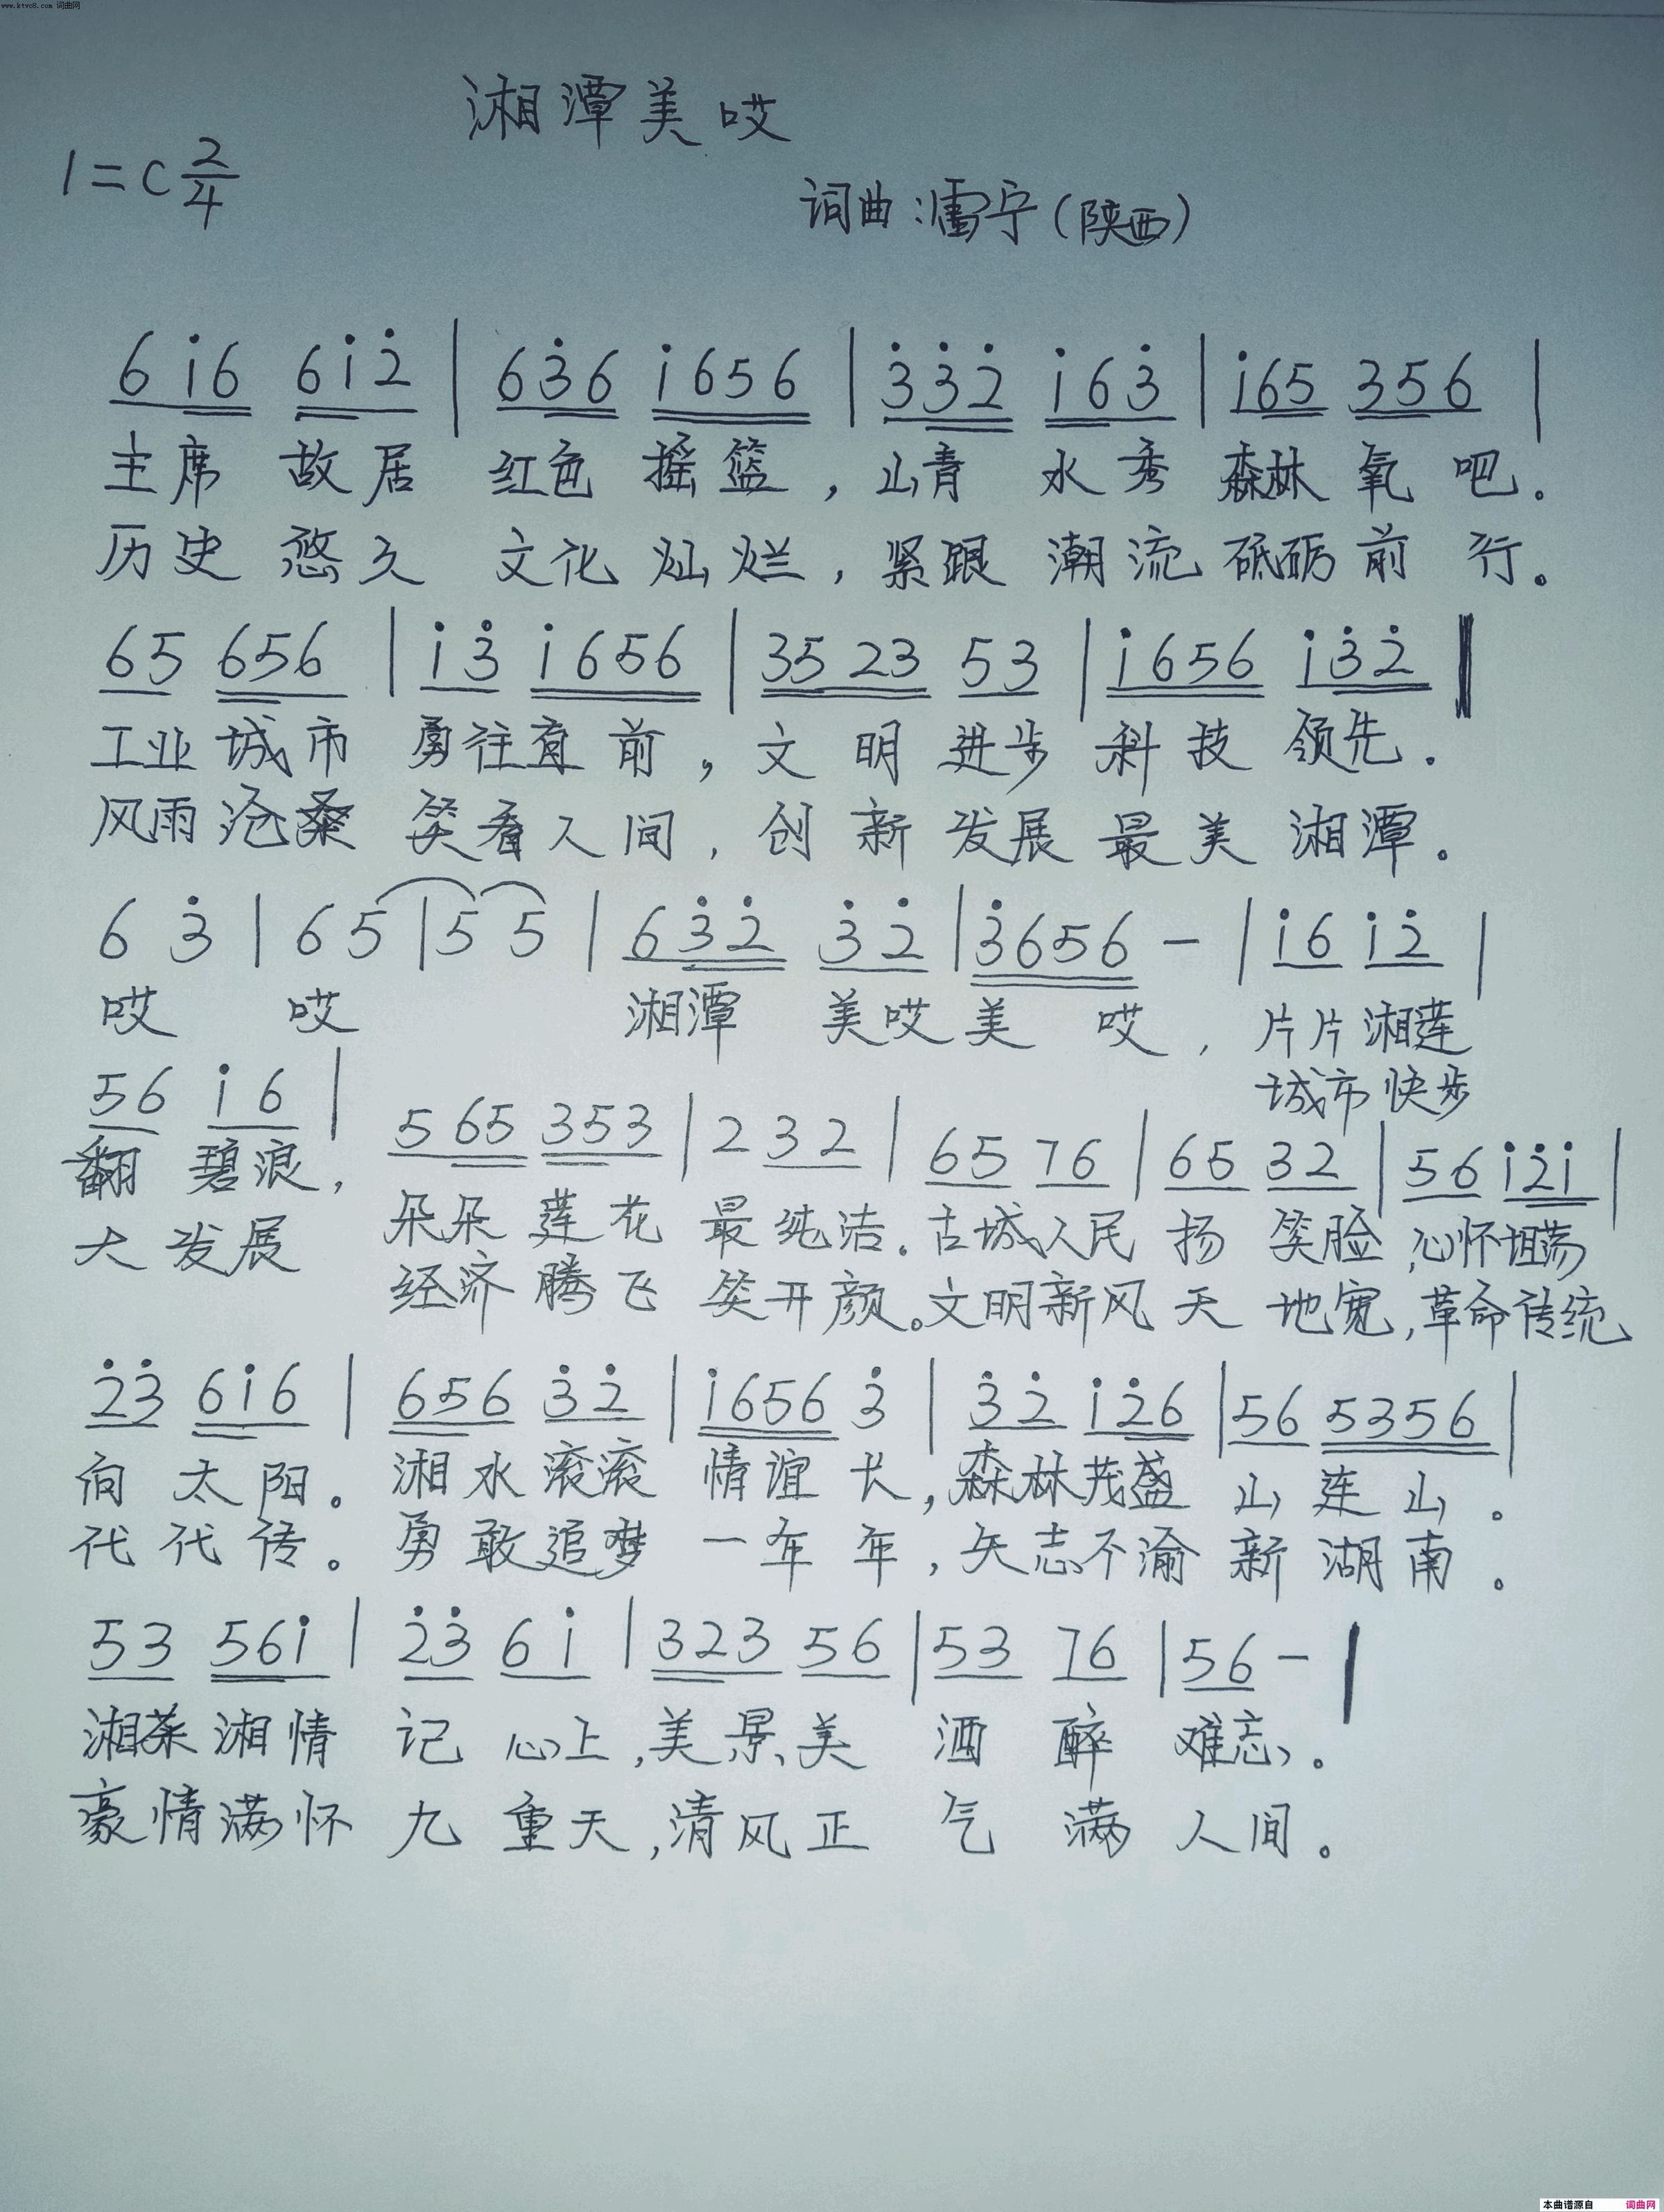 www.ktvc8.com 词曲网
湘潭美哎
1=C 2/4
词曲:雷宁(陕西)
6 i̇ 6 6 i̇ 2̇ | 6 3̇ 6 i̇ 6 5 6 | 3̇ 3̇ 2̇ i̇ 6 3̇ | i̇ 6 5 3 5 6 |
主席 故居 红色 摇篮,山青 水秀 森林 氧 吧.
历史 悠久 文化 灿烂,紧跟 潮流 砥砺 前 行。
6 5 6 5 6 | i̇ 3̇ i̇ 6 5 6 | 3 5 2 3 5 3 | i̇ 6 5 6 i̇ 3̇ 2̇ ‖
工业 城市 勇往直前,文 明 进步 科技 领先.
风雨沧桑 笑看人间,创新 发展 最美 湘潭。
6 3̇ | 6 5 | 5 5 | 6 3̇ 2̇ 3̇ 2̇ | 3̇ 6 5 6 - | i̇ 6 i̇ 2̇ |
哎 哎 湘潭 美哎 美 哎,片片湘莲
城市快步
5 6 i̇ 6 | 5 6 5 3 5 3 | 2 3 2 | 6 5 7 6 | 6 5 3 2 | 5 6 i̇ 2̇ i̇ |
翻 碧浪,朵朵 莲花 最纯洁.古城人民 扬 笑脸,心怀坦荡
大 发展 经济 腾飞 笑开颜。文明新风 天 地宽,革命传统
2̇ 3̇ 6 i̇ 6 | 6 5 6 3̇ 2̇ | i̇ 6 5 6 3̇ | 3̇ 2̇ i̇ 2̇ 6 | 5 6 5 3 5 6 |
向 太 阳。湘水滚滚 情谊 长,森林茂盛 山 连 山。
代 代 传。勇敢追梦 一年 年,矢志不渝 新 湖 南。
5 3 5 6 i̇ | 2̇ 3̇ 6 i̇ | 3 2 3 5 6 | 5 3 7 6 | 5 6 - |
湘茶湘情 记 心上,美景美 酒 醉 难忘。
豪情满怀 九 重天,清风正 气 满 人间。
本曲谱源自 词曲网